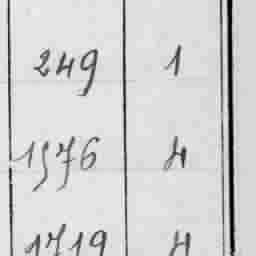 249 1
1576 4
1719 4